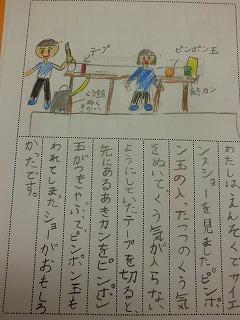 テープ
ピンポン玉
くう気を
ぬく
きかい
あきカン
わたしは、えんそくでサイエ
ンスショーを見ました。ピンポ
ン玉の入ったつつのくう気
をぬいてくう気がいらない
ようにしていたテープを切ると、
先にあるあきカンをピンポン
玉がつきやぶって、ピンポン玉も
われてしまったショーがおもしろ
かったです。